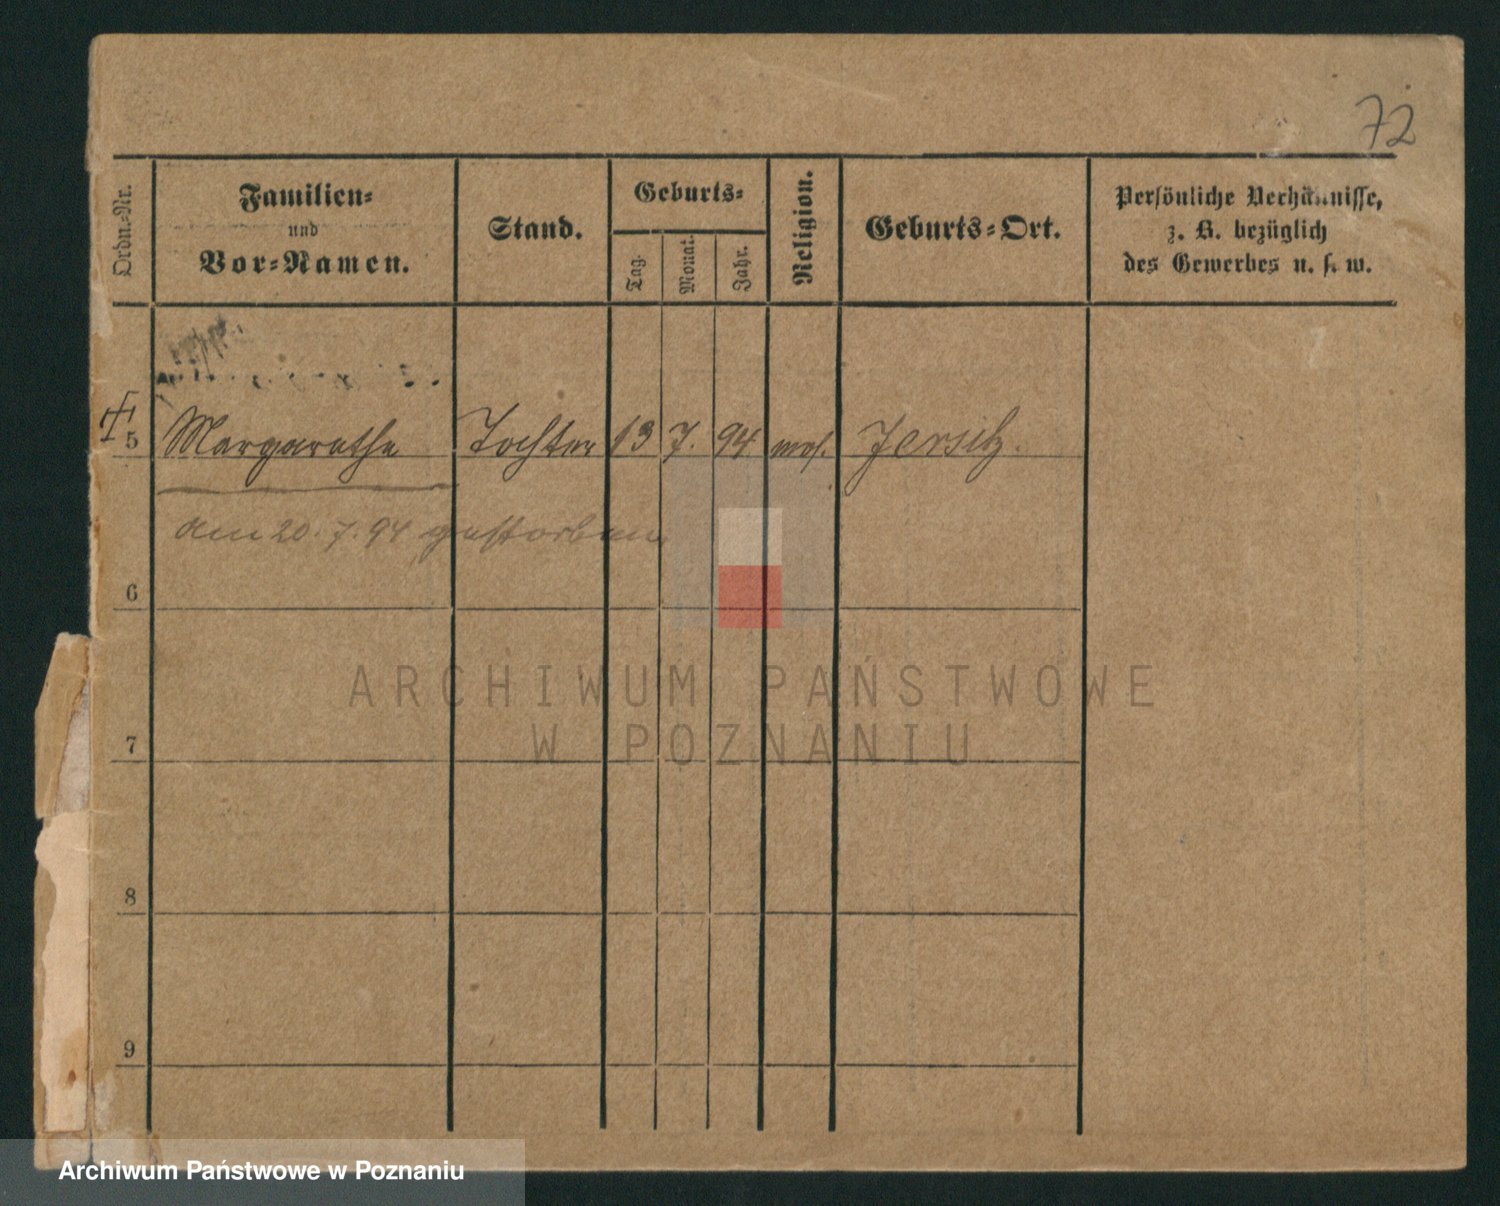 72
Ordn.-Nr.
Familien-
und
Vor-Namen.
Stand.
Geburts-
Tag.
Monat.
Jahr.
Religion.
Geburts-Ort.
Persönliche Verhältnisse,
z. B. bezüglich
des Gewerbes u. s. w.
5 Margarethe Tochter 13 7. 94 mos. Jersitz.
am 20. 7. 94 gestorben
6
7
8
9
ARCHIWUM PAŃSTWOWE
W POZNANIU
Archiwum Państwowe w Poznaniu